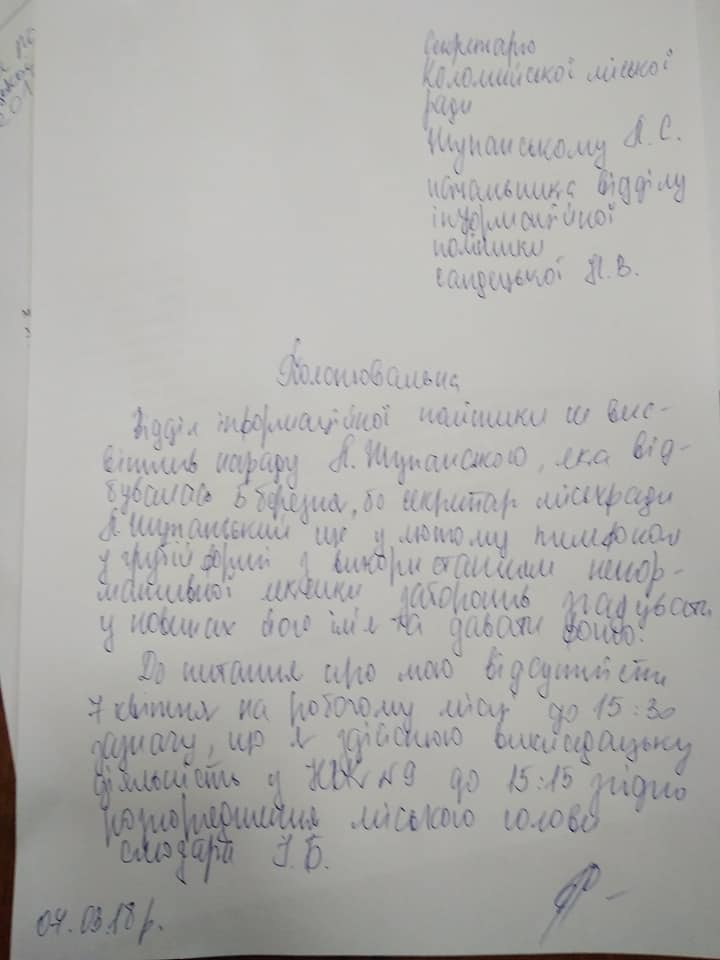 Секретарю
Коломийської міської
ради
Жупанському Я.С.
начальника відділу
інформаційної
політики
Сандецької Н.В.
Пояснювальна
Відділ інформаційної політики не вис-
вітлив нараду Я. Жупанського, яка від-
бувалась 5 березня, бо секретар міськради
Я Жупанський ще у лютому телефоном
у грубій формі з використанням ненор-
мативної лексики заборонив згадувати
у новинах його ім'я та давати фото.
До питання про мою відсутність
7 квітня на робочому місці до 15:30
зазначу, що я здійснюю викладацьку
діяльність у НВК №9 до 15:15 згідно
розпорядження міського голови
Слюзара І.Б.
07.03.18 р.